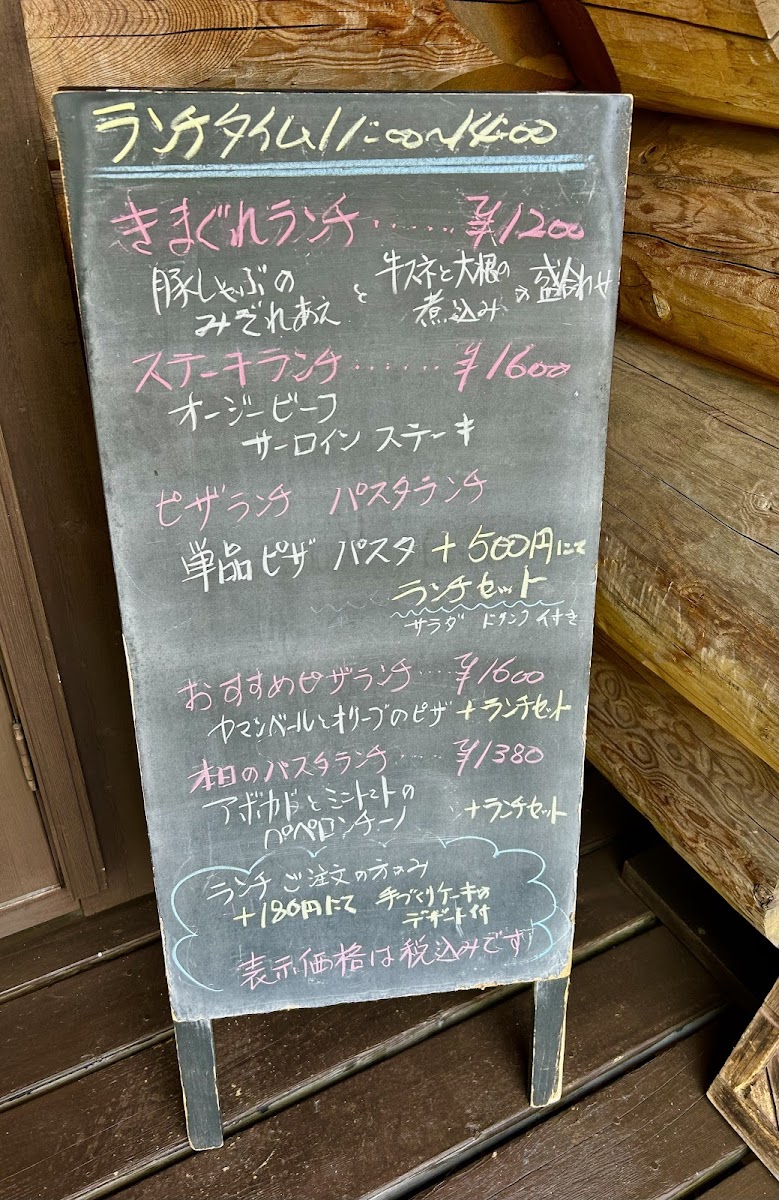 ランチタイム11:00〜14:00
きまぐれランチ・・・・・・¥1200
豚しゃぶの みぞれあえ と 牛スネと大根の 煮込み の盛合わせ
ステーキランチ・・・・・・¥1600
オージービーフ
サーロインステーキ
ピザランチ パスタランチ
単品ピザ パスタ+500円にて
ランチセット
サラダ ドリンク付き
おすすめピザランチ・・・・¥1600
カマンベールとオリーブのピザ+ランチセット
本日のパスタランチ・・・・¥1380
アボカドとミニトマトの
ペペロンチーノ +ランチセット
ランチご注文の方のみ
+180円にて 手づくりケーキの
デザート付
表示価格は税込みです